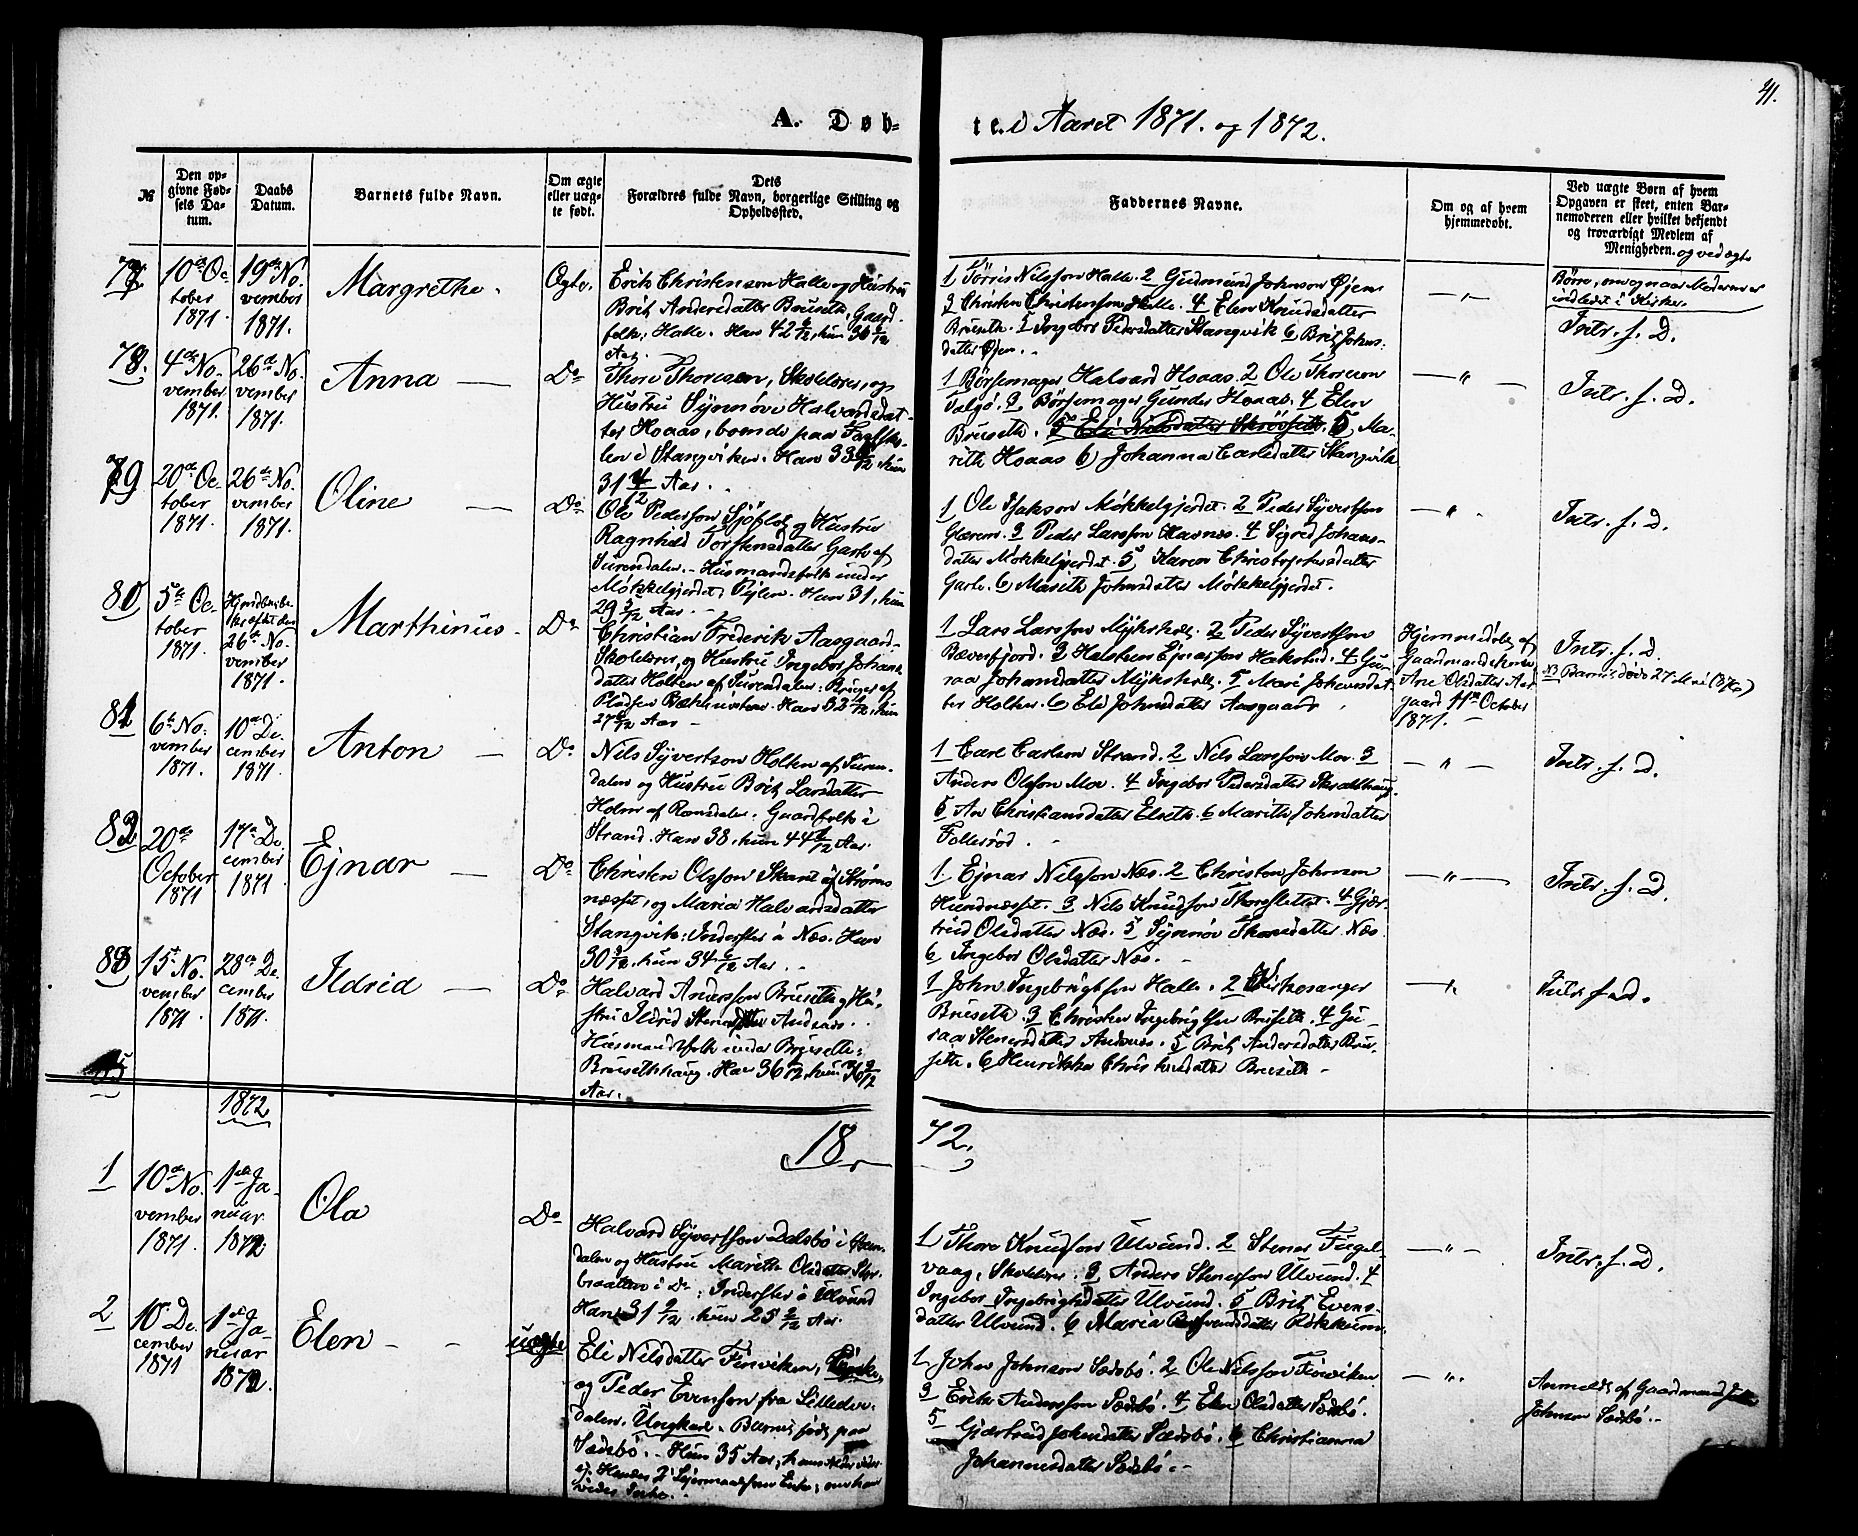 41.
A. Døb-
te i Aaret 1871. og 1872.
№
Den op-
givne Fød-
sels Da-
tum.
Daabs
Datum.
Barnets fulde Navn.
Om ægte
eller uæg-
te født.
Dets
Forældres fulde Navn, borgerlige Stilling og
Opholdssted.
Faddernes Navne.
Om og af hvem
hjemmedøbt.
Ved uægte Børn af hvem
Opgaven er skeet, enten Bar-
nemoderen eller hvilket bekjendt
og troværdigt Medlem af
Menigheden. og ved ægte
Børn, om og naar Moderen er
indledet i Kirken.
77
10de Oc-
tober
1871.
19de No-
vember
1871.
Margrethe.
Ægte.
Erik Christensen Halle og Hustru
Brit Andersdatter Bruseth, Gaard-
folk, Halle. Han 42 /12, hun 36 /12
Aar.
1 Tørris Nilsson Halle. 2 Gudmund Johnsen Øjen
3 Christen Christensson Halle. 4 Elen Knudsdatter
Bruseth. 5 Ingebor Pedersdatter Stangvik 6 Brit Johns-
datter Øjen.
Intr. s. D.
78.
4de No-
vember
1871.
26de No-
vember
1871.
Anna
Do
Thore Thoresen, Skolelærer, og
Hustru Synnøve Halvardsdat-
ter Hoaas, boende paa
i Stangviken. Han 33 /12, hun
31 /12 Aar.
1 Børsemager Halvard Hoaas. 2 Ole Thoresen
Talgø. 3 Børsemager Gunder Hoaas. 4 Elen
Bruseth. 5 Eli Nilsdatter Skrøvseth. 5, Ma-
rith Hoaas 6) Johanna Carlsdatter Stangvik
Intr. s. D.
79
20de Oc-
tober
1871.
26de No-
vember
1871.
Oline
Do
Ole Pederson Sjøflot og Hustru
Ragnhild Torstensdatter Garte af
Surendalen. - Husmandsfolk under
Møkkelgjerdet, . Han 31, hun
29 /12 Aar.
1 Ole Isakson Møkkelgjerdet. 2 Peder Syvertson
Glærem. 3 Peder Larsson Havnes. 4 Sigrid Johans-
datter Møkkelgjerdet. 5 Karen Christophersdatter
Garte. 6 Marith Johnsdatter Møkkelgjerdet.
Intr. s. D.
80
5te Oc-
tober
1871.
26de No-
vember
1871.
Marthinus.
Do
Christian Frederik Aasgaard
Skolelærer, og Hustru Ingebor Johans-
datter Holten af Surendalen: Bruger af
Pladsen . Han 32 /12, hun
27 /12 Aar
1 Lars Larsson Mykleholt. 2 Peder Syvertson
Bæverfjord. 3 Halsten Ejnarson Hakstad. 4 Gu-
raa Johansdatter Mykleholt. 5 Mari Johansdat-
ter Holten. 6 Eli Johnsdatter Aasgaard
Hjemmedøbt af
Gaardmandskone
Ane Olsdatter Aas-
gaard 11te October
1871.
Intr. s. D.
81
6te No-
vember
1871.
10de De-
cember
1871.
Anton
Do
Nils Syvertson Holten af Suren-
dalen og Hustru Brit Larsdatter
Holm af Romsdalen. Gaardfolk i
Strand. Han 38, hun 44 /12 Aar.
1 Carl Carlsen Strand. 2 Nils Larsson Moe. 3
Anders Olsson Moe. 4 Ingebor Pedersdatter
5 An Christiansdatter Elseth. 6 Marith Johnsdatter
Follerød.
Intr. s. D.
82
20de
October
1871
17de De-
cember
1871.
Ejnar
Do
Christen Olsson Skaret af Strøms-
næsset, og Maria Halvardsdatter
Stangvik: Inderster i Næs. Han
30 /12, hun 34 /12 Aar.
1. Ejnar Nilsson Næs. 2 Christen Johnsen
Hundnæsset. 3 Nils Knudson Thoresletten. 4 Gjær-
trud Olsdatter Næs. 5 Synnøv Thoresdatter Næs.
6 Ingebor Olsdatter Næs.
Intr. s. D.
83
15de No-
vember
1871.
28de De-
cember
1871.
Ildrid
Do
Halvard Andersson Bruseth og Hu-
stru Ildrid Stenersdatter Andsnes.
Husmandsfolk under Bruseth:
Brusethhaug. Han 36 /12, hun 36 /12
Aar.
1 John Ingebrigtson Halle. 2 Kirkesanger
Bruseth. 3 Christen Ingebrigtson Bruseth. 4 Gu-
raa Stenersdatter Andsnes. 5 Brit Andersdatter Bru-
seth. 6 Henrikka Christensdatter Bruseth
Intr. s. D.
1872
1872.
1
10de No-
vember
1871.
1ste Ja-
nuar
1872
Ola
Do
Halvard Syvertsson Dalsbø i Suren-
dalen og Hustru Marith Olsdatter
i Do: Inderster i Ulvund
Han 31 /12, hun 25 /12 Aar.
1 Thore Knudson Ulvund. 2 Stener Fugel-
vaag, Skolelærer. 3 Anders Stenerson Ulvund. 4
Ingebor Ingebrigtsdatter Ulvund. 5 Brit Evens-
datter Ulvund. 6 Maria Røkkum.
Intr. s. D.
2
10 De-
cember
1871
1ste Ja-
nuar
1872.
Elen
uægte
Eli Nilsdatter Finviken, Pige,
og Peder Evensen fra Lilledu-
dalen, Ungkarl. Barnet født paa
Sædsbø. - Hun 35 Aar,
1 John Johnsen Sædsbø. 2 Ole Nilsson Finviken
3 Erik Andersson Sædsbø. 4 Elen Olsdatter Sædsbø.
5 Gjærtrud Johnsdatter Sædsbø. 6 Christianna
Johannesdatter Sædsbø.
Anmeldt af Gaardmand John
Johnsen Sædsbø.